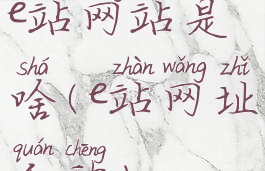 e站网站是
shá zhàn wǎng zhǐ
啥(e站网址
quán chēng